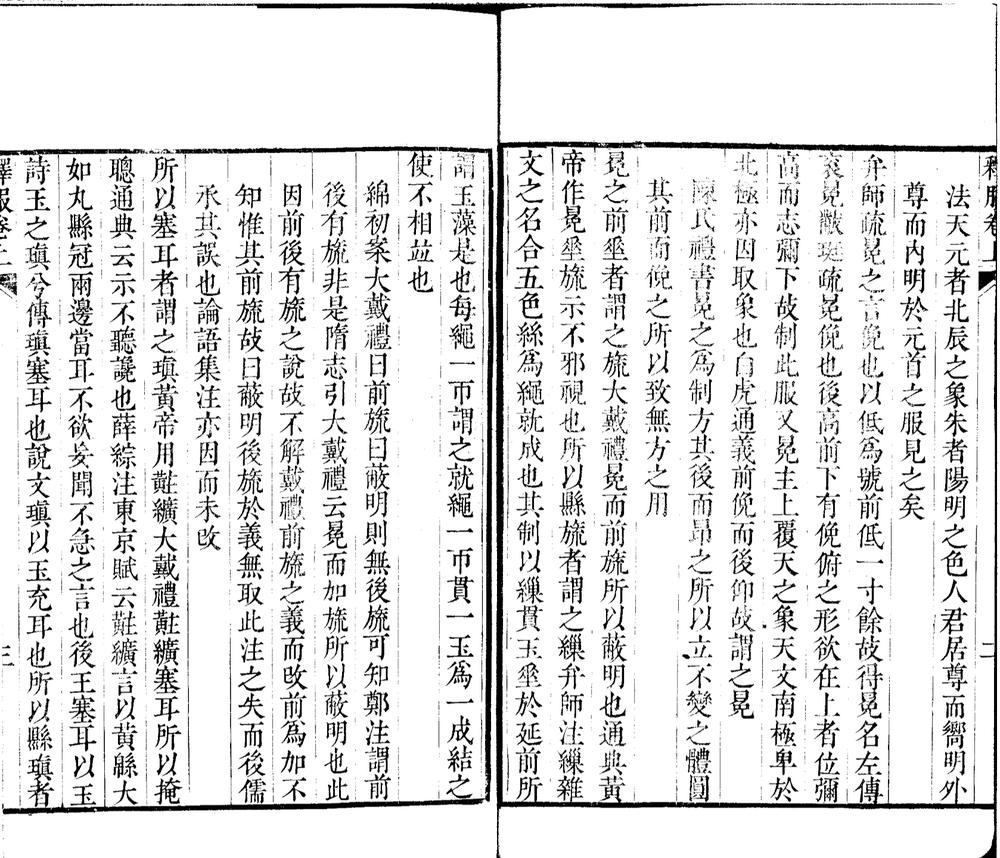 釋服卷上
二
法天元者北辰之象朱者陽明之色人君居尊而嚮明外
尊而內明於元首之服見之矣
弁師疏冕之言俛也以低爲號前低一寸餘故得冕名左傳
袞冕黻珽疏冕俛也後高前下有俛俯之形欲在上者位彌
高而志彌下故制此服又冕主上覆天之象天文南極卑於
北極亦因取象也白虎通義前俛而後仰故謂之冕
陳氏禮書冕之爲制方其後而昂之所以立不變之體圓
其前而俛之所以致無方之用
冕之前垂者謂之旒大戴禮冕而前旒所以蔽明也通典黃
帝作冕垂旒示不邪視也所以縣旒者謂之繅弁師注繅雜
文之名合五色絲爲繩就成也其制以繅貫玉垂於延前所
謂玉藻是也每繩一帀謂之就繩一帀貫一玉爲一成結之
使不相竝也
綿初案大戴禮曰前旒曰蔽明則無後旒可知鄭注謂前
後有旒非是隋志引大戴禮云冕而加旒所以蔽明也此
因前後有旒之說故不解戴禮前旒之義而改前爲加不
知惟其前旒故曰蔽明後旒於義無取此注之失而後儒
承其誤也論語集注亦因而未改
所以塞耳者謂之瑱黃帝用黈纊大戴禮黈纊塞耳所以掩
聰通典云示不聽讒也薛綜注東京賦云黈纊言以黃緜大
如丸縣冠兩邊當耳不欲妄聞不急之言也後王塞耳以玉
詩玉之瑱兮傳瑱塞耳也說文瑱以玉充耳也所以縣瑱者
釋服卷上
三